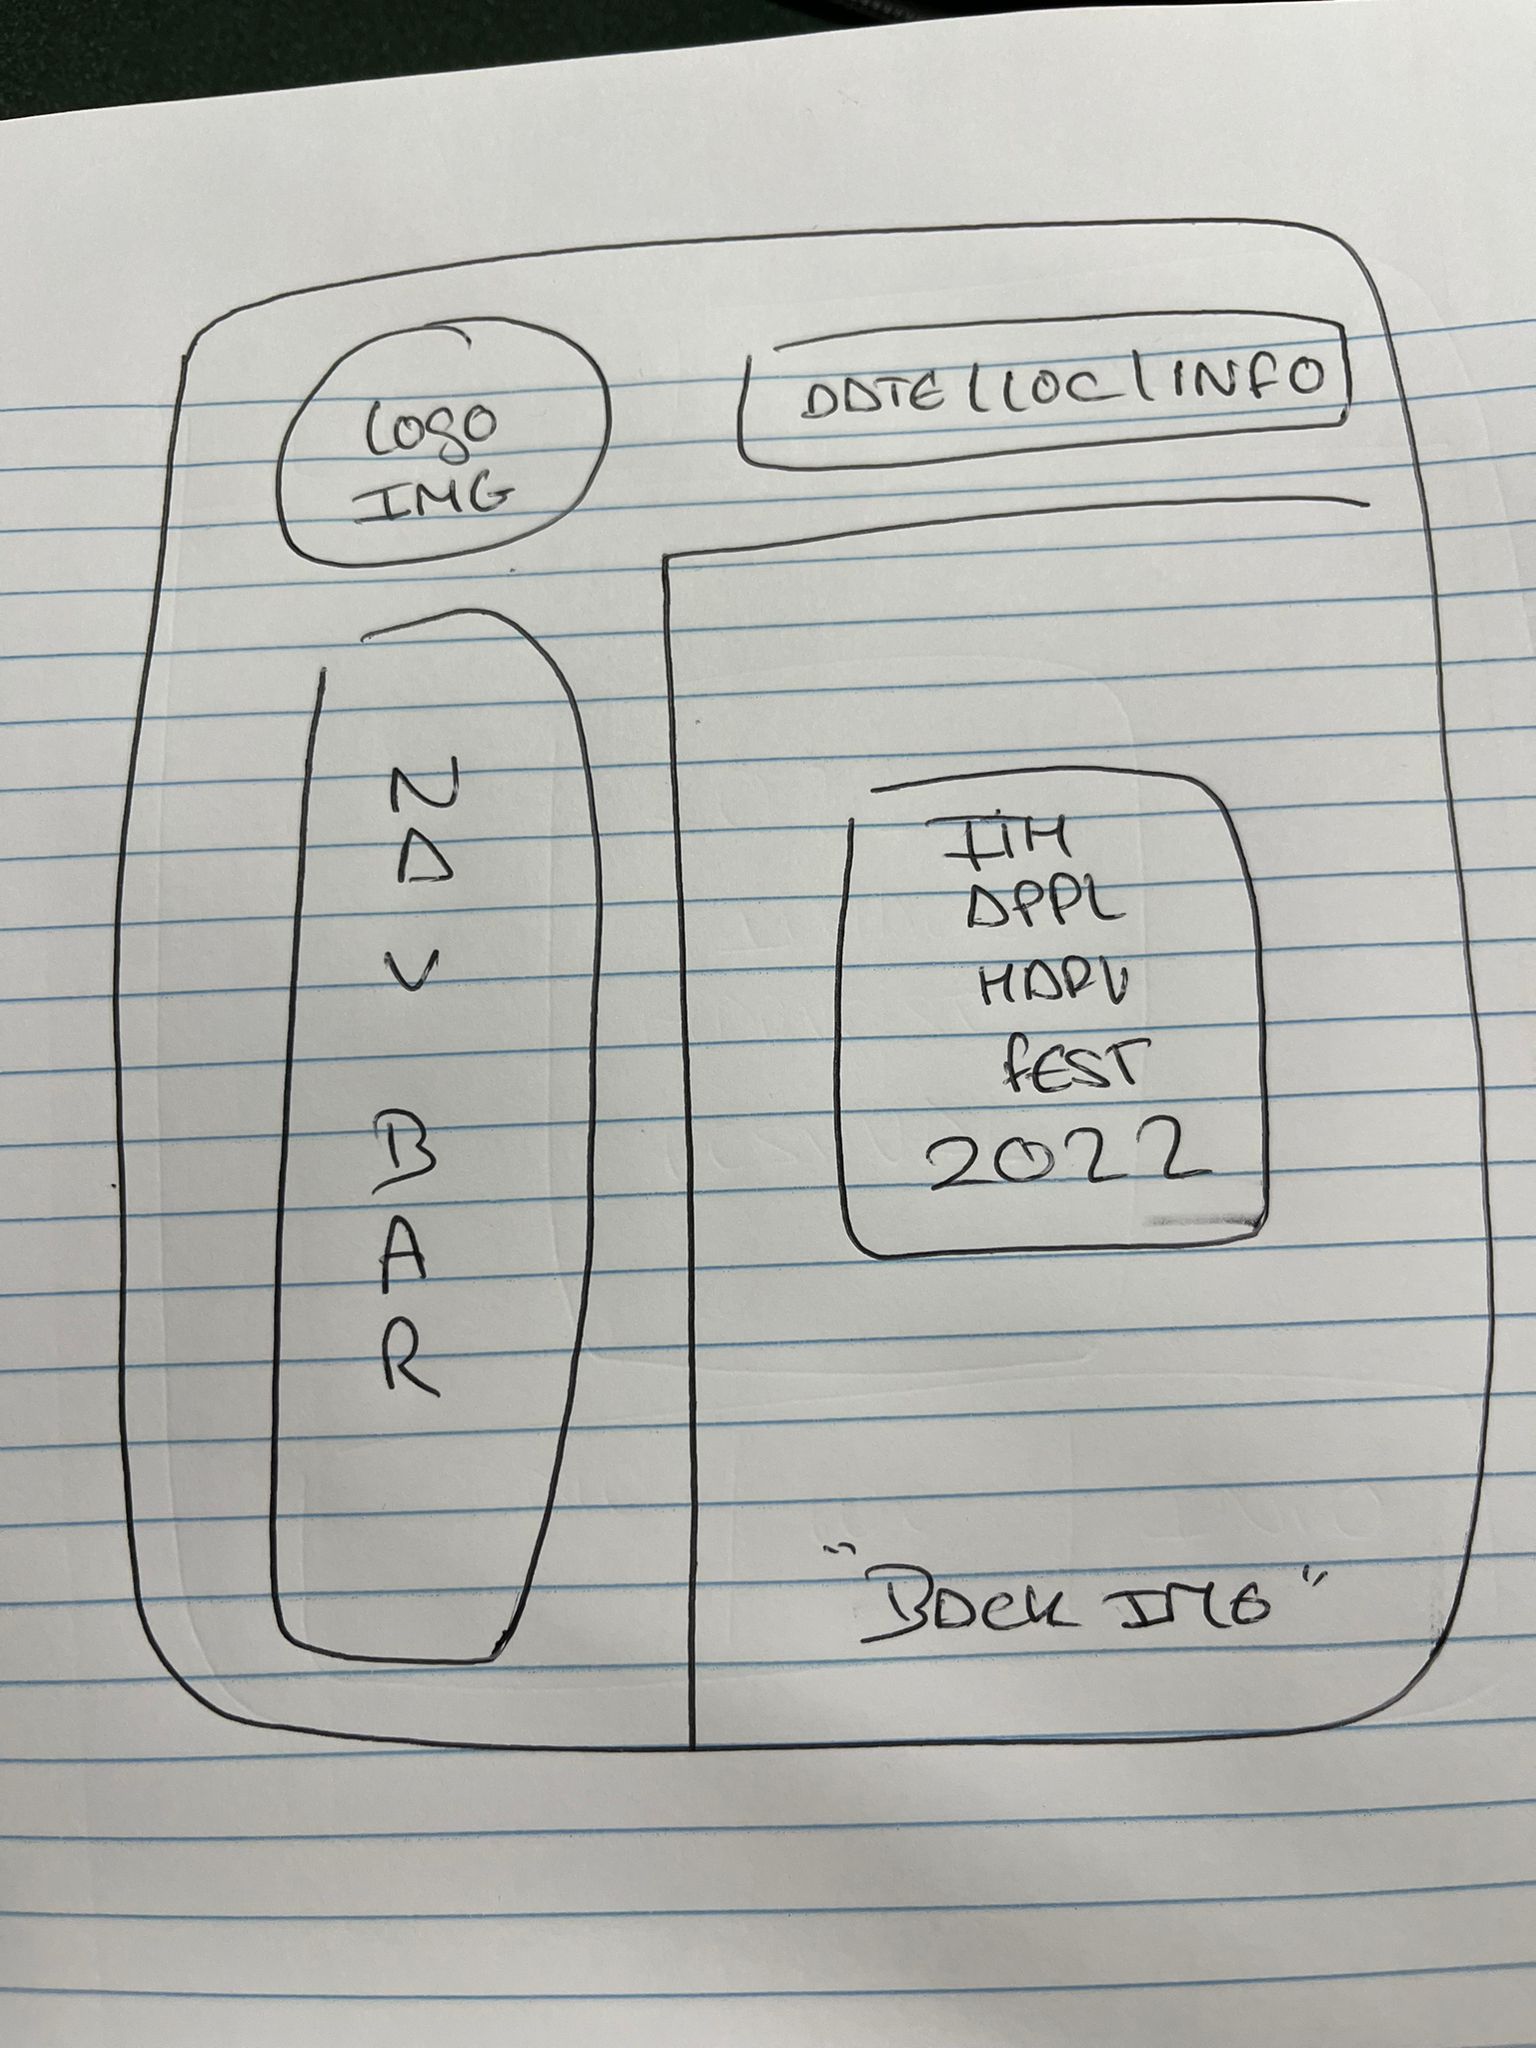 Logo
IMG
DATE | LOC | INFO
N
A
V
B
A
R
APPL
HARV
FEST
2022
"BACK IMG"